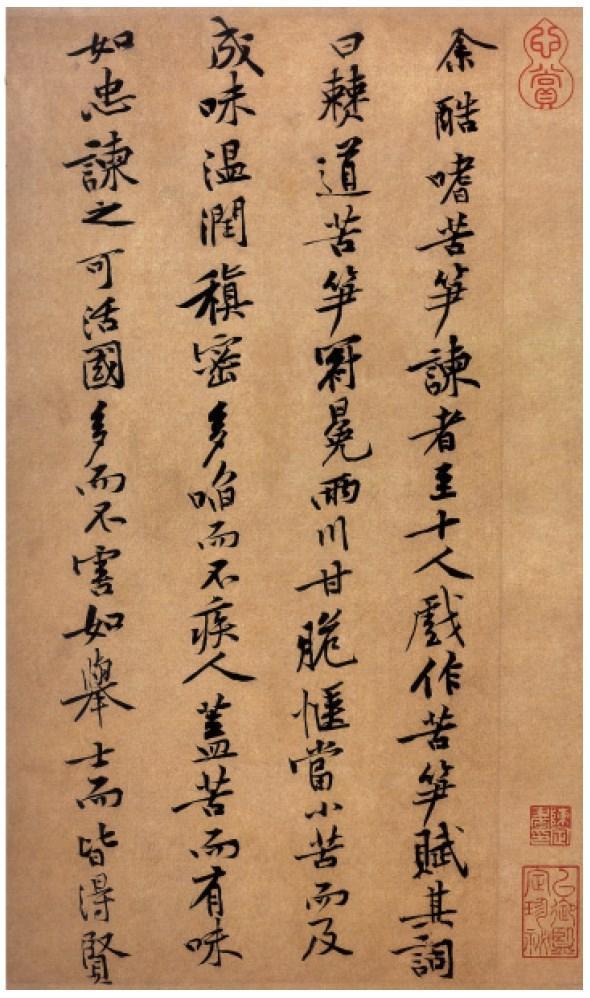 心賞
余酷嗜苦笋諫者至十人戲作苦笋賦其詞
曰僰道苦笋冠冕兩川甘脆愜當小苦而反
成味温潤稹密多啗而不疾人蓋苦而有味
如忠諫之可活國多而不害如舉士而皆得賢